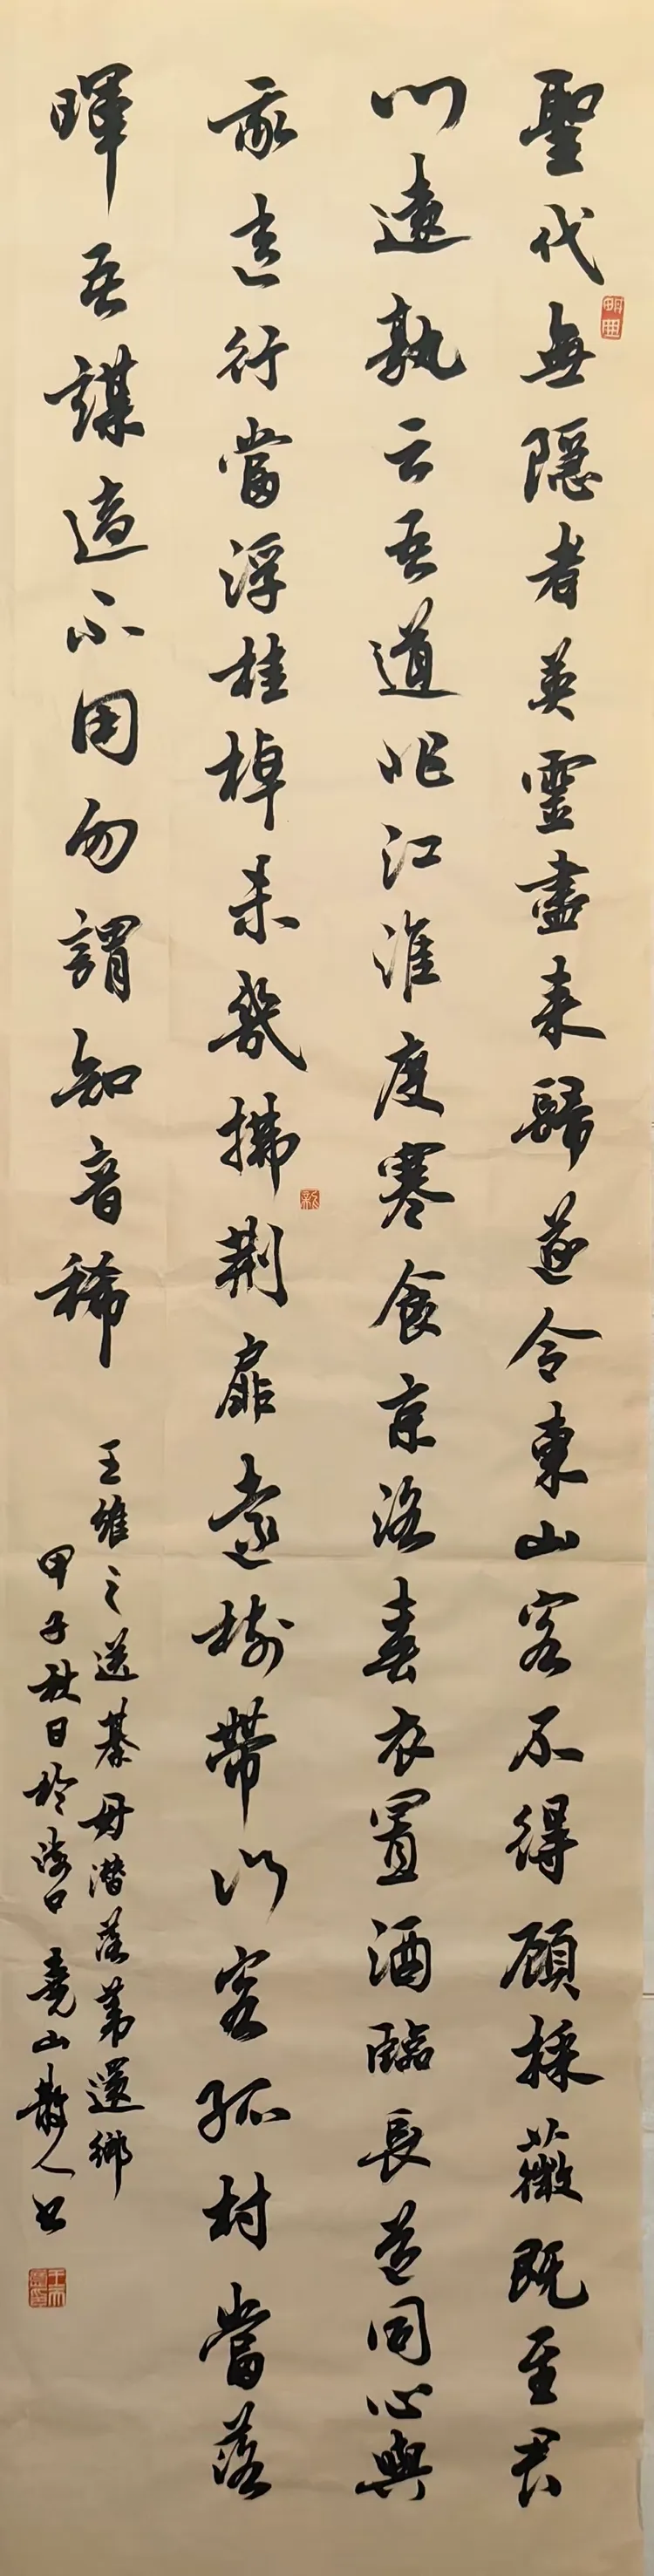 聖代無隱者英靈盡來歸遂令東山客不得顧採薇既至君
門遠孰云吾道非江淮度寒食京洛春衣置酒臨長道同心與
我違行當浮桂棹未幾拂荊扉遠樹帶行客孤村當落
暉吾謀適不用勿謂知音稀
王維之送綦毋潛落第還鄉
甲子秋日於海口堯山散人书